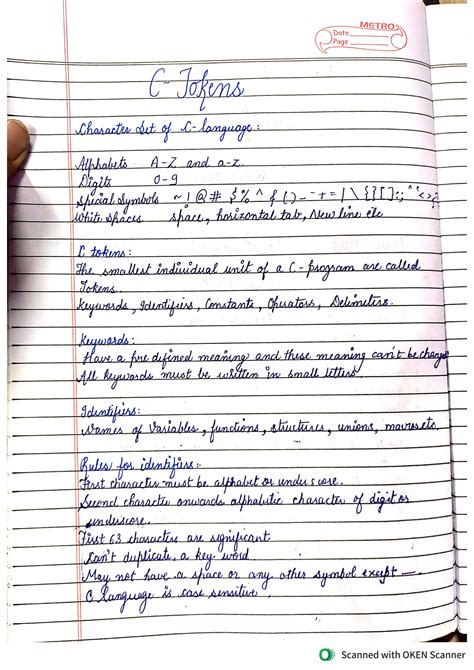 METRO
Date
Page
C-Tokens
Character Set of C-language:
Alphabets A-Z and a-z.
Digits 0-9
Special Symbols ~ ! @ # $ % ^ & ( ) _ - + = | \ { } [ ] : ; " ' < > , ?
White spaces space, horizontal tab, New line etc
C tokens:
The smallest individual unit of a C-program are called
Tokens.
Keywords, Identifiers, Constants, Operators, Delimeters.
Keywords:
Have a pre defined meaning and these meaning can't be change
All keywords must be written in small letters
Identifiers:
Names of Variables, functions, structures, unions, macros etc.
Rules for identifiers:-
First character must be alphabet or underscore.
Second character onwards alphabetic character of digit or
underscore.
First 63 characters are significant
Can't duplicate a key word.
May not have a space or any other symbol except —
C Language is case sensitive.
Scanned with OKEN Scanner